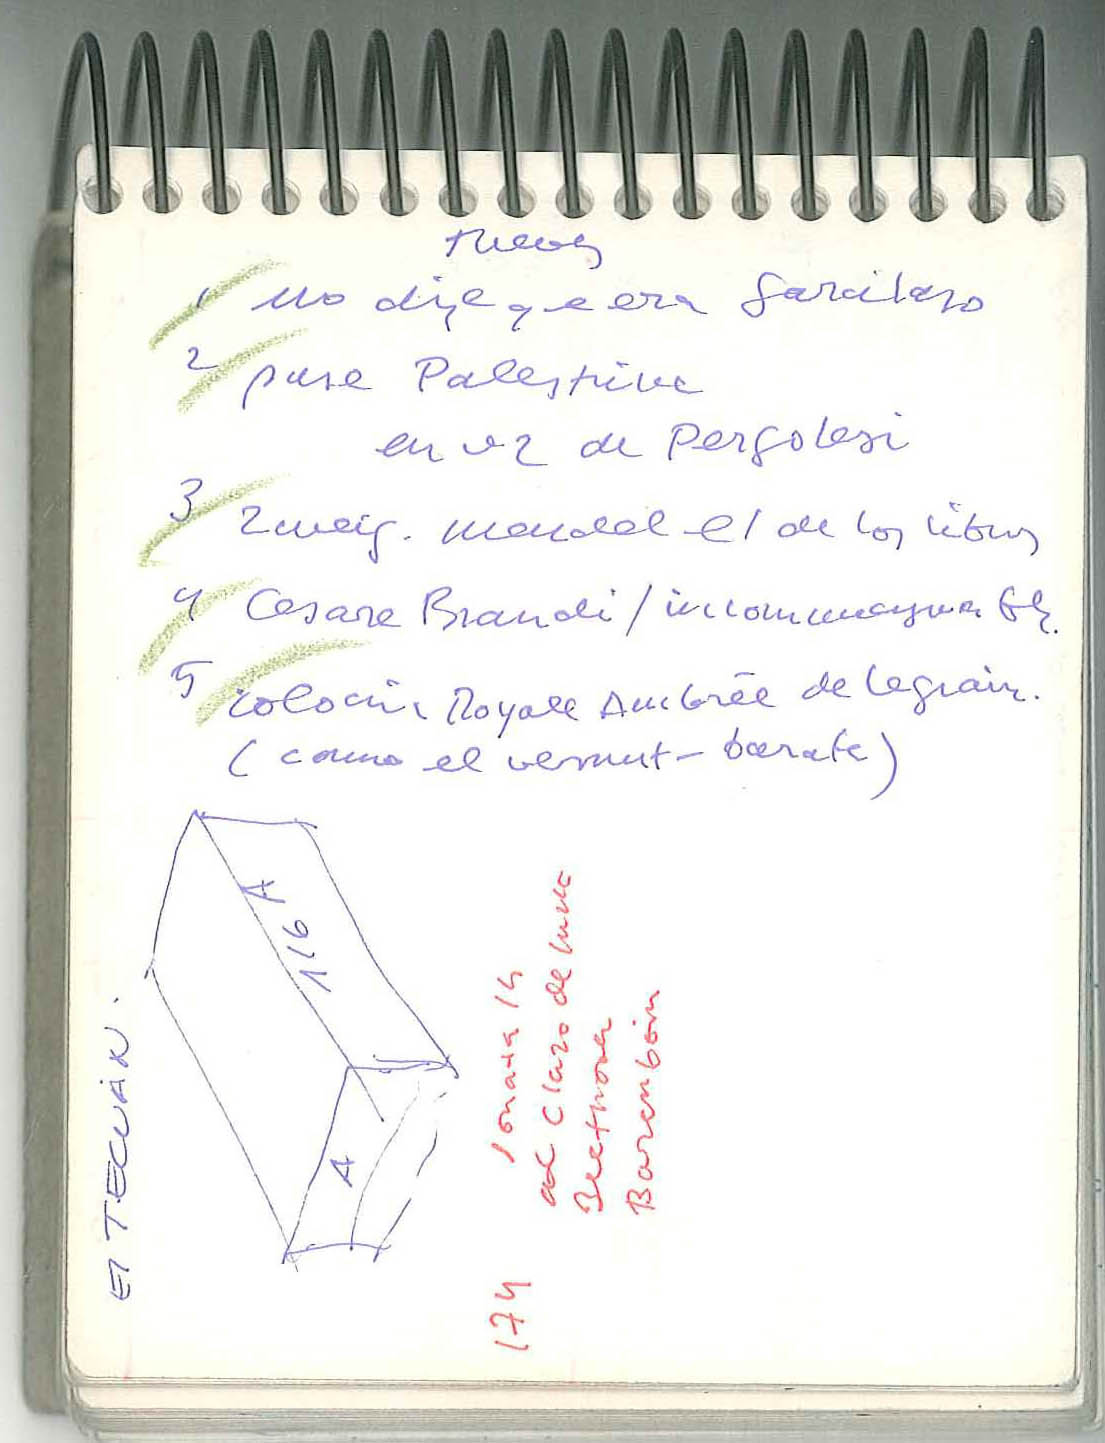 1 no dije que era Garcilaso
2 puse Palestrina
en vez de Pergolesi
3 Zweig. Mendel el de los libros
4 Cesare Brandi /
5 colonia Royale Ambrée de Legrain.
(como el vermut - barata)
116 A
A
El TECUÁN.
sonata 14
al Claro de luna
Beethoven
Barenboim
174